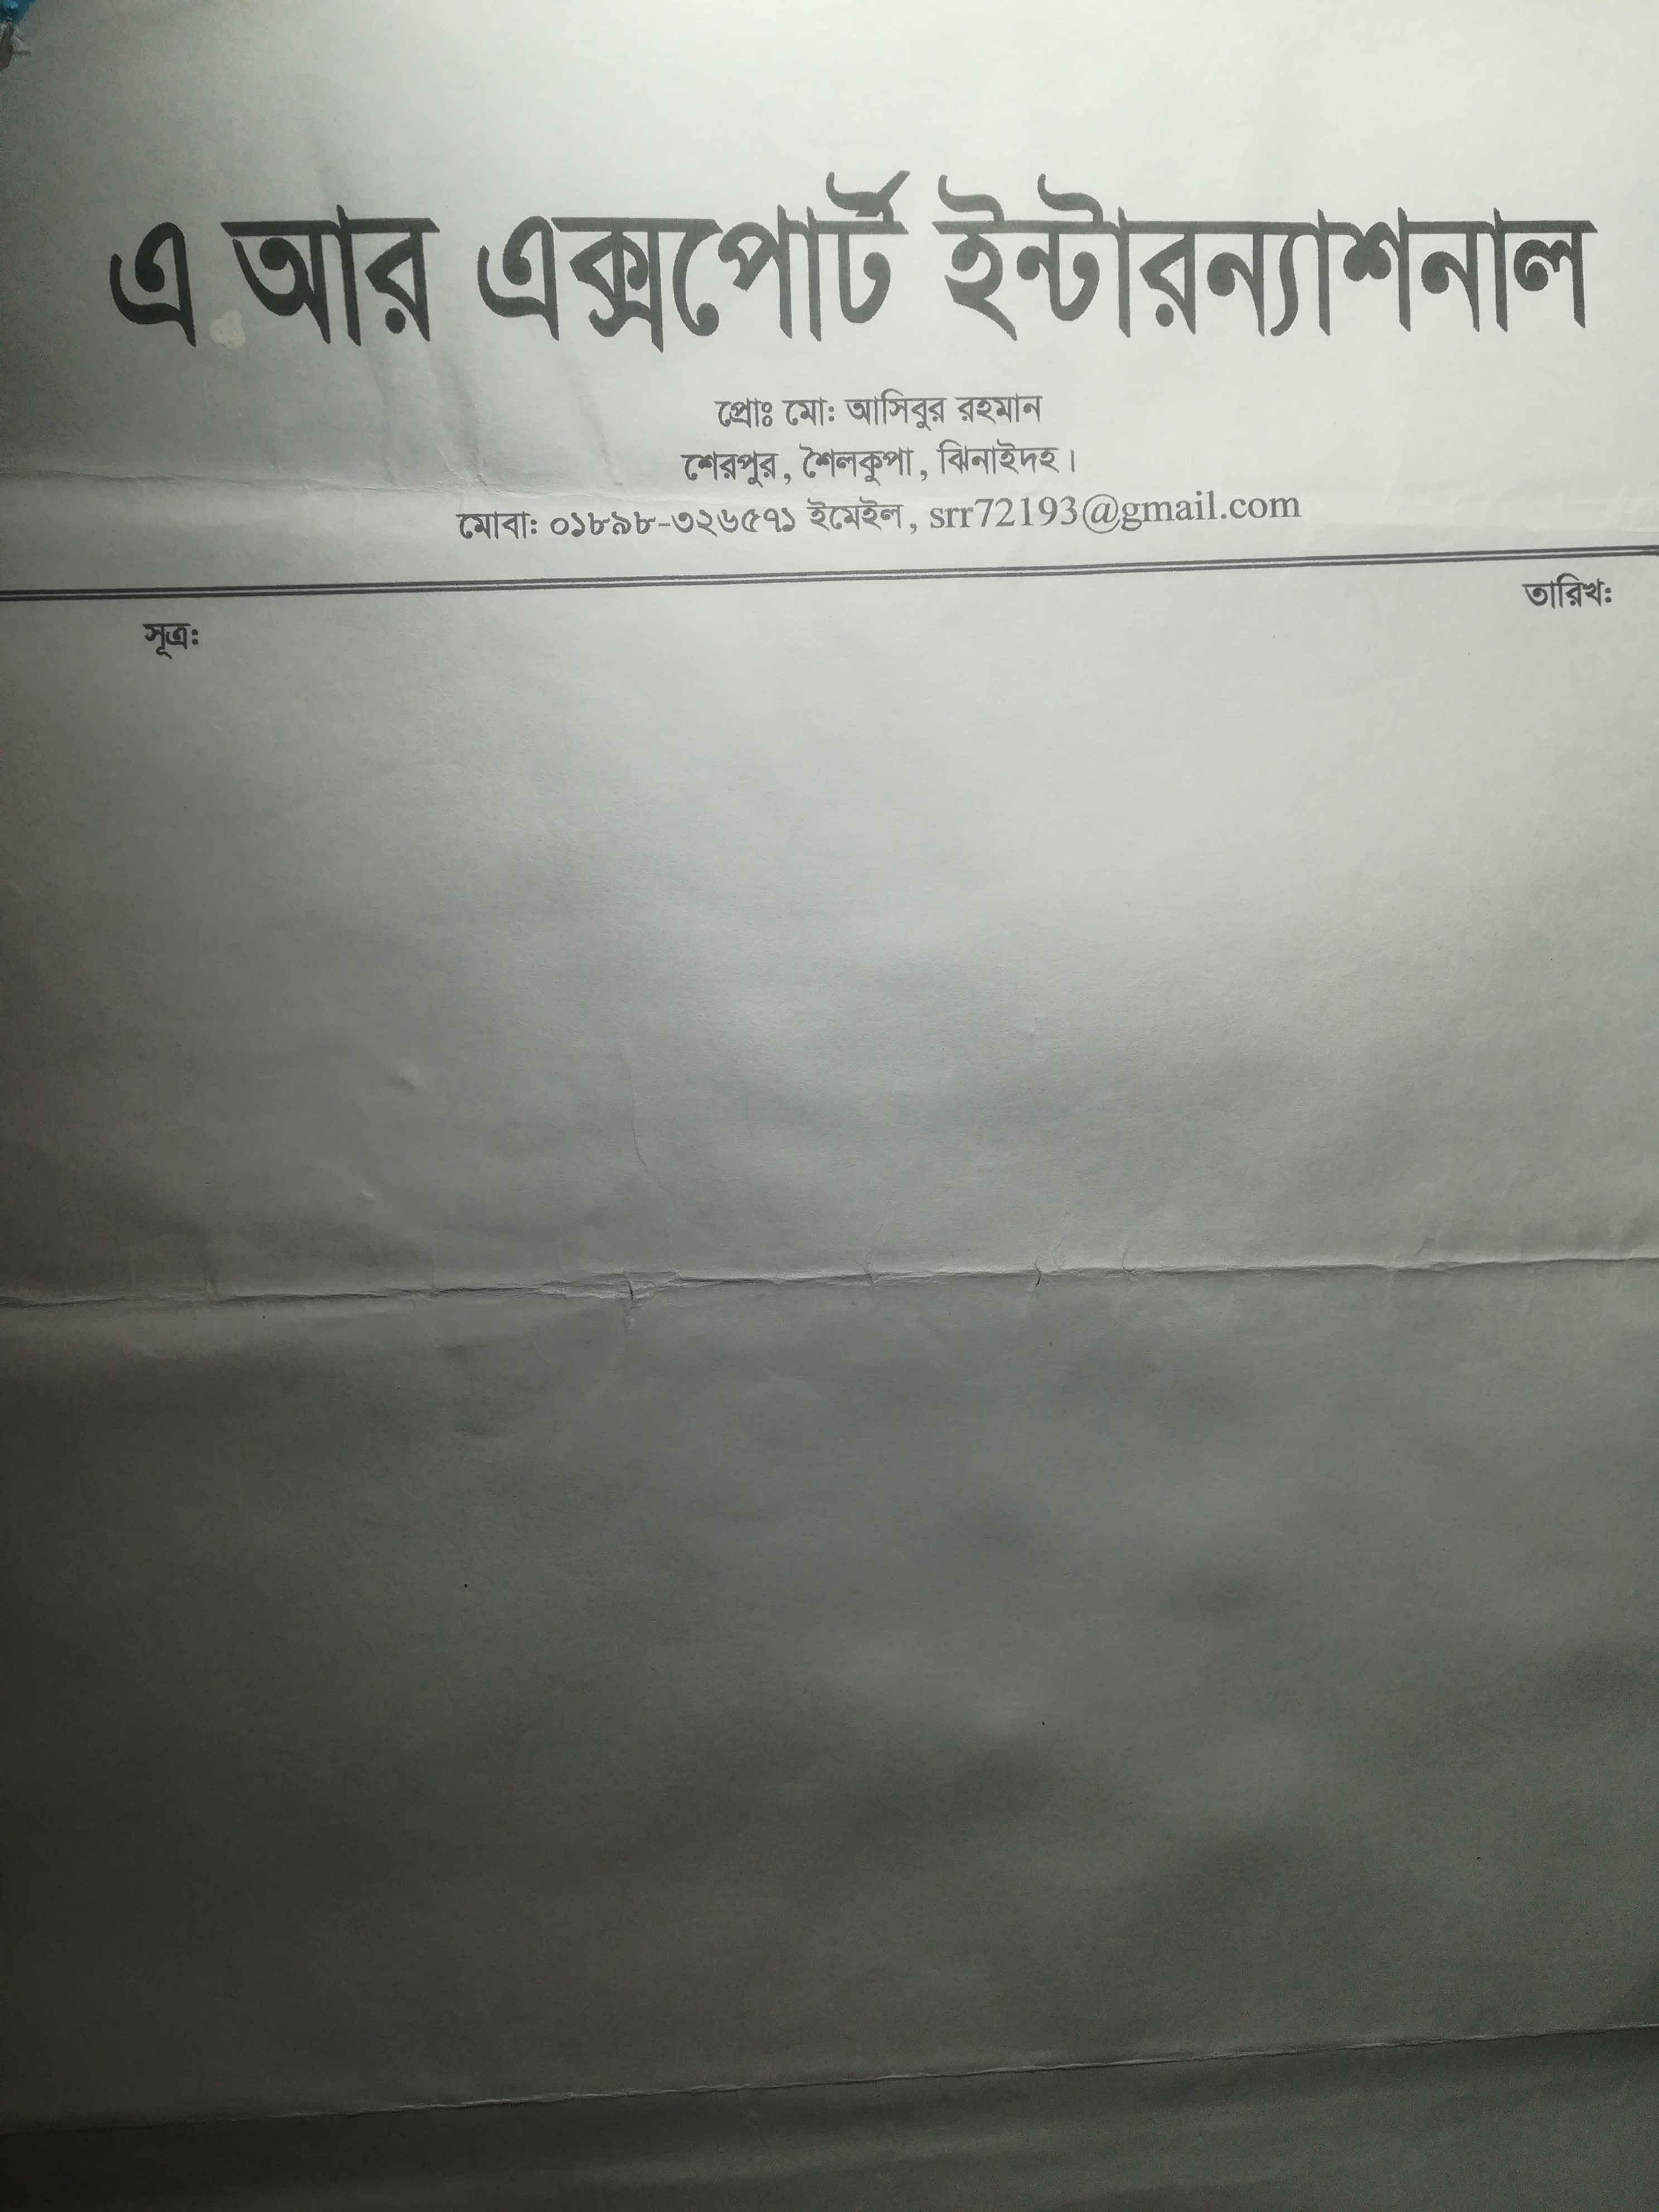 এ আর এক্সপোর্ট ইন্টারন্যাশনাল
প্রোঃ মো: আসিবুর রহমান
শেরপুর, শৈলকুপা, ঝিনাইদহ।
মোবা: ০১৮৯৮-৩২৬৫৭১ ইমেইল, srr72193@gmail.com
তারিখ:
সূত্র: